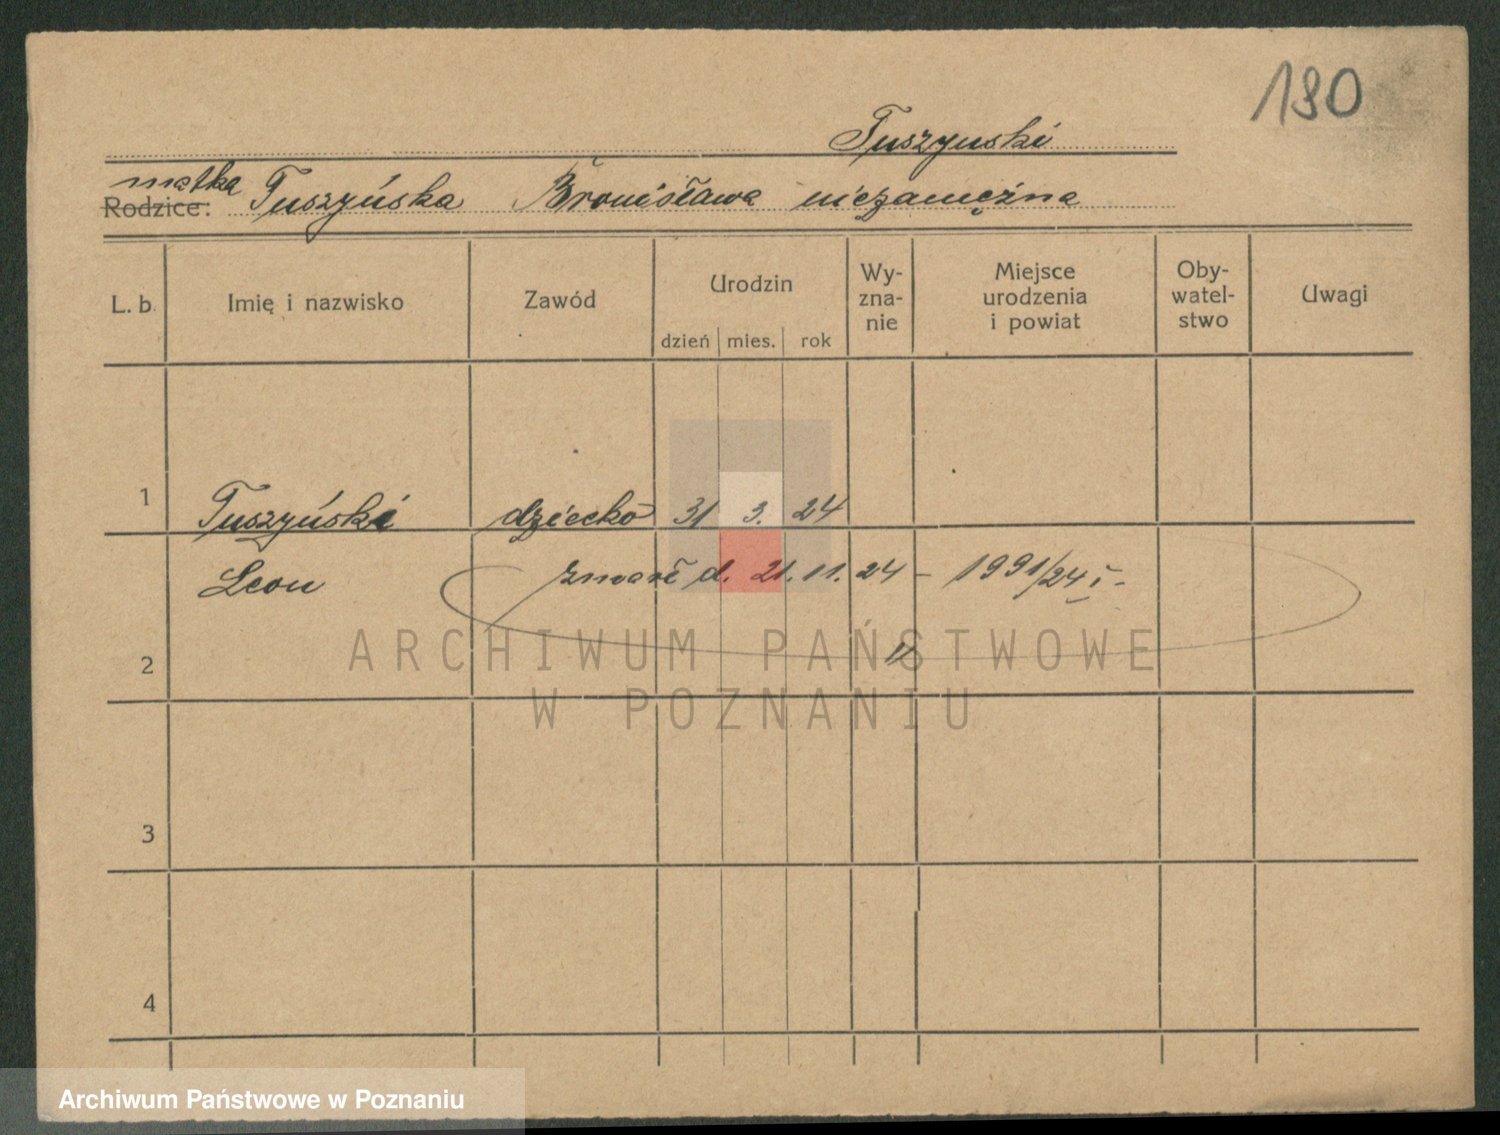 190
Tuszynski
matka
Rodzice: Tuszyńska Bronisława niezamężna
L. b. Imię i nazwisko Zawód Urodzin dzień mies. rok Wy-zna-nie Miejsce urodzenia i powiat Oby-watel-stwo Uwagi
1 Tuszyński dziecko 31 3. 24
Leon zmarł d. 21. 11. 24 – 1991/24 I.-
2
ARCHIWUM PAŃSTWOWE
W POZNANIU
3
4
Archiwum Państwowe w Poznaniu